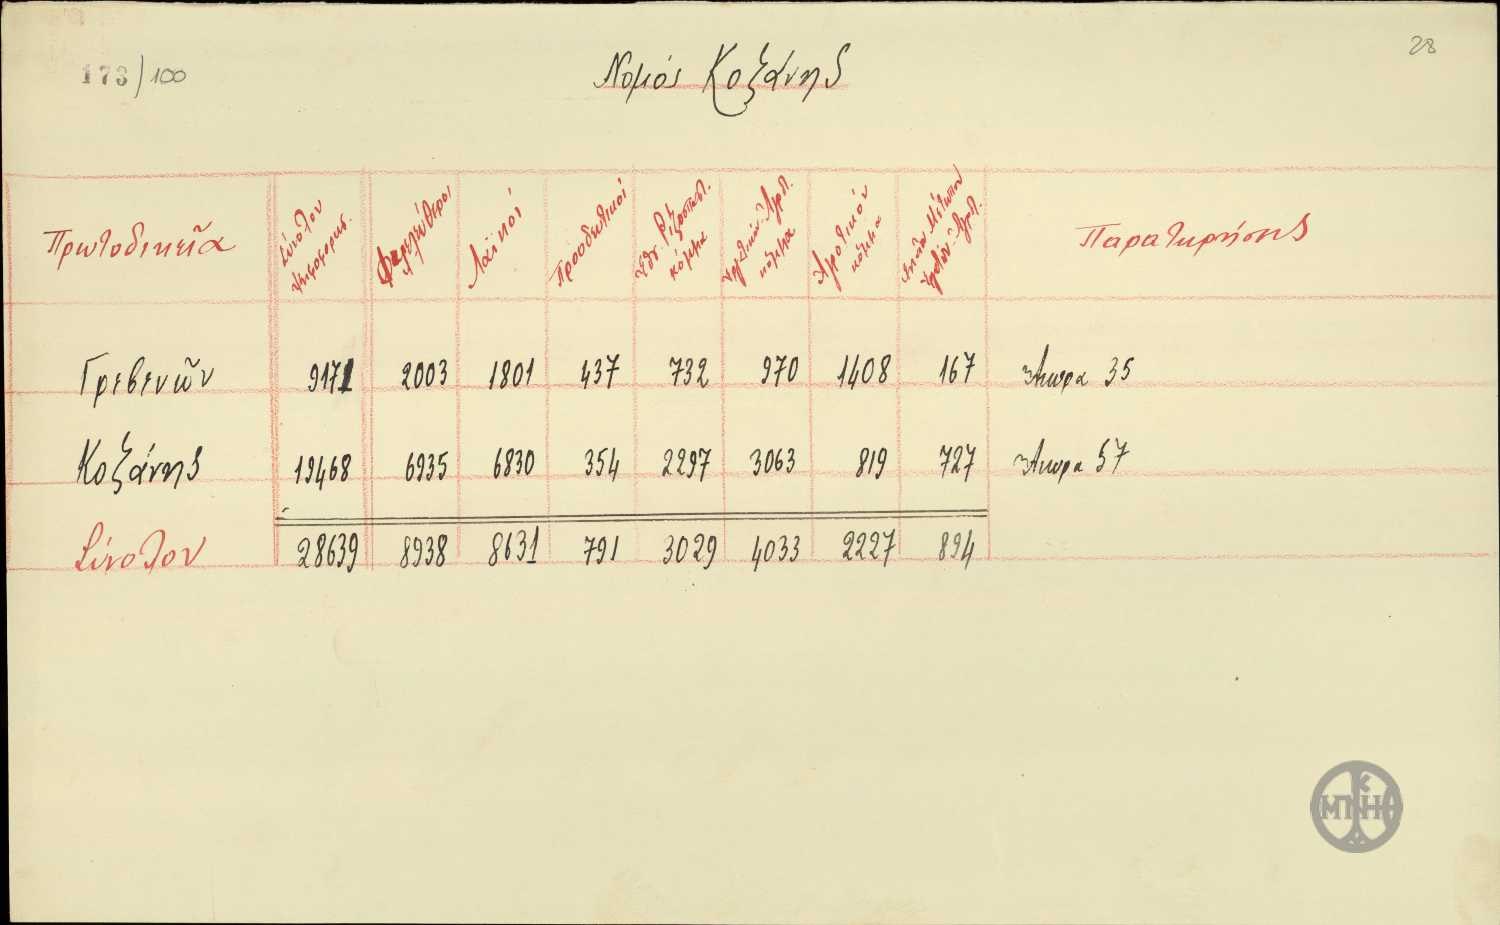 173/100
28
Νομός Κοζάνης
Πρωτοδικεῖα Σύνολον ψηφοφορησ. Φιλελεύθεροι Λαϊκοί Προοδευτικοί κόμμα Ἀγροτ. κόμμα Ἀγροτικόν κόμμα Ἀγροτ. Παρατηρήσεις
Γρεβενῶν 9171 2003 1801 437 732 970 1408 167 Ἄκυρα 35
Κοζάνης 19468 6935 6830 354 2297 3063 819 727 Ἄκυρα 57
Σύνολον 28639 8938 8631 791 3029 4033 2227 894
ΜΠΝΗΑ